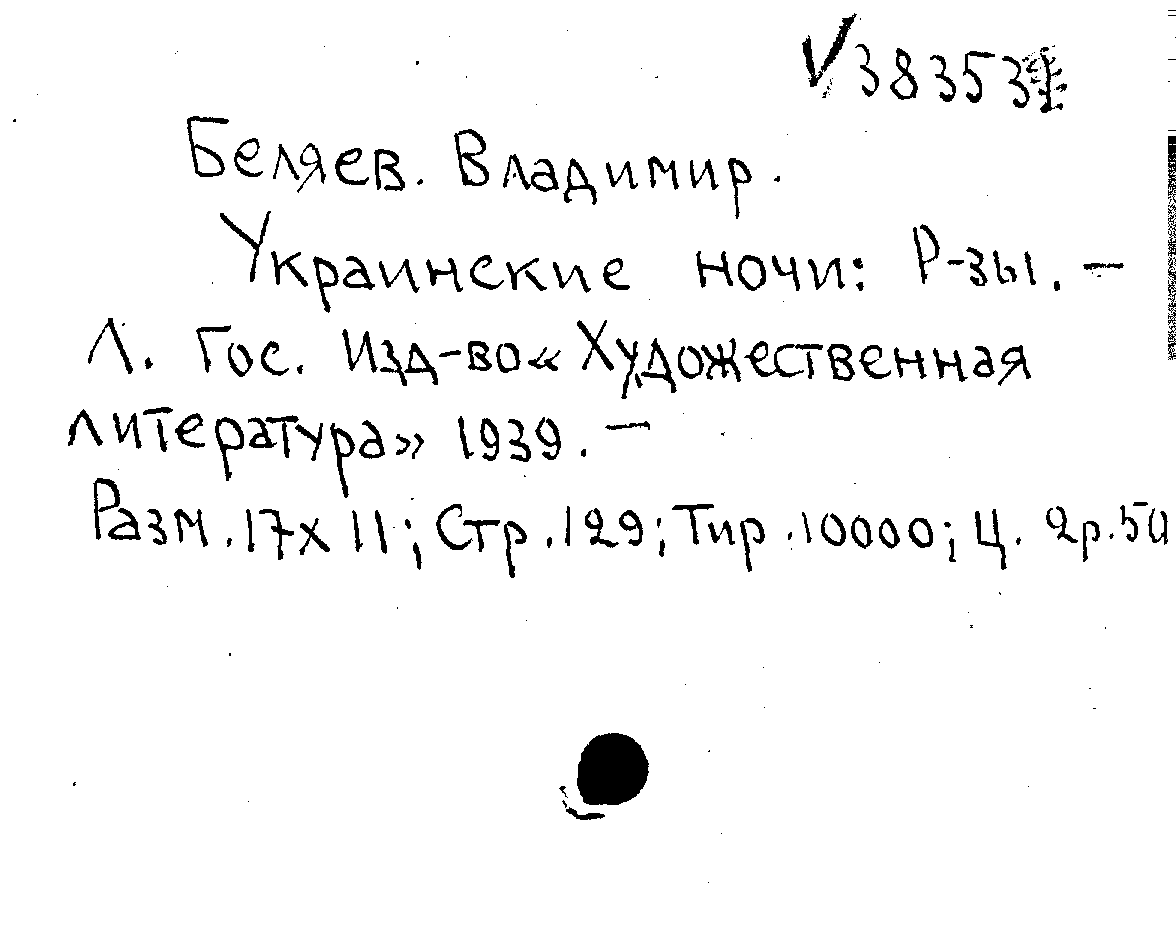 383531
Беляев. Владимир.
Украинские ночи: Р-зы. —
Л. Гос. Изд-во « Художественная
литература» 1939. —
Разм. 17х11; Стр. 129; Тир. 10000; Ц. 2р. 50